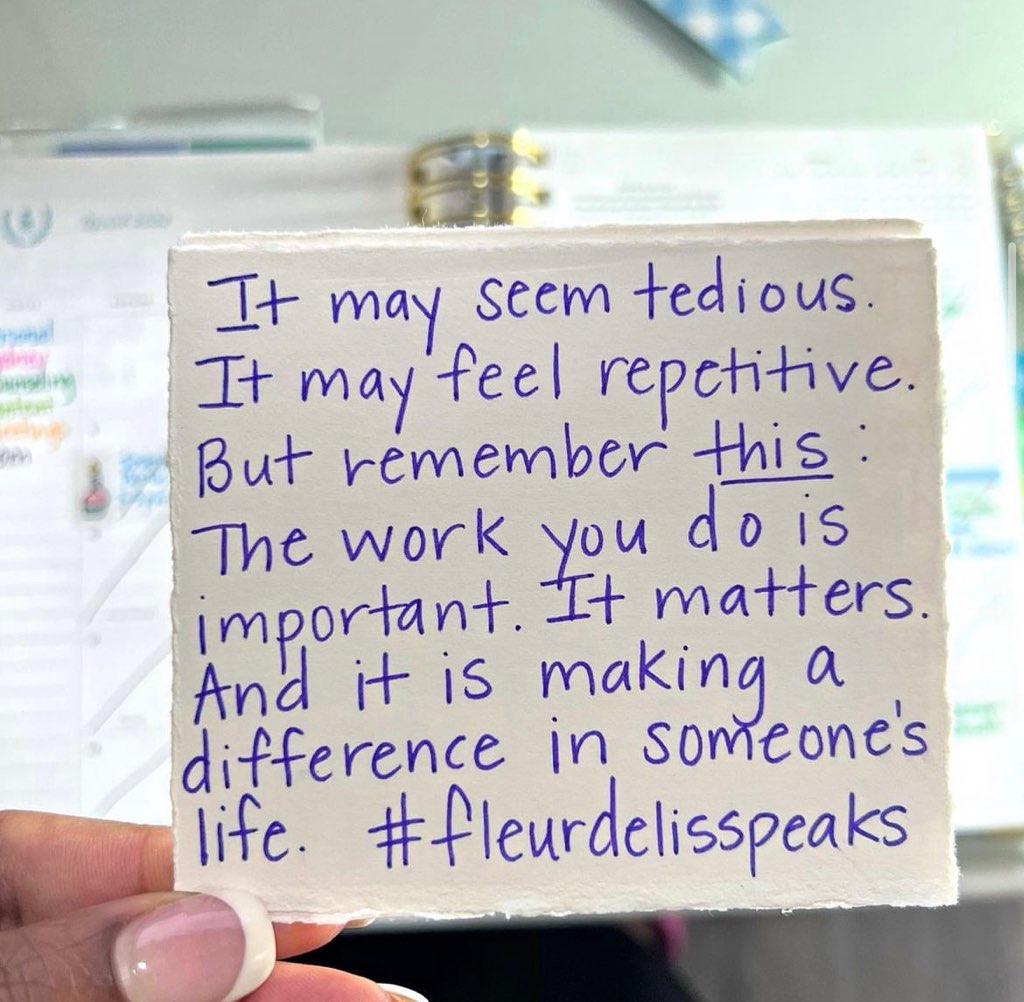 It may seem tedious.
It may feel repetitive.
But remember this:
The work you do is
important. It matters.
And it is making a
difference in someone's
life. #fleurdelisspeaks